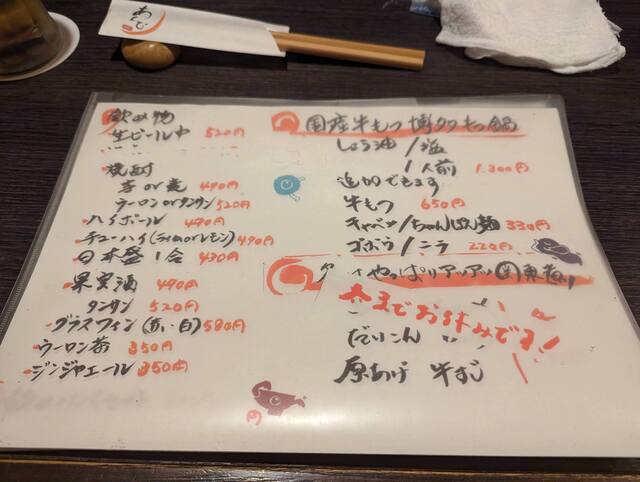 あくび
飲み物
生ビール中 520円
焼酎
芋or麦 490円
ウーロンorタンサン 520円
ハイボール 490円
チューハイ(ライムorレモン) 490円
日本盛 1合 430円
果実酒 490円
タンサン 520円
グラスワイン(赤い・白) 580円
ウーロン茶 350円
ジンジャエール 350円
国産牛もつ 博多もつ鍋
しょう油/塩
1人前 1,300円
追加できます
牛もつ 650円
キャベツ/ちゃんぽん麺 330円
ゴボウ/ニラ 220円
やっぱりアツアツ
までお休みです!
だいこん
厚あげ 牛すじ